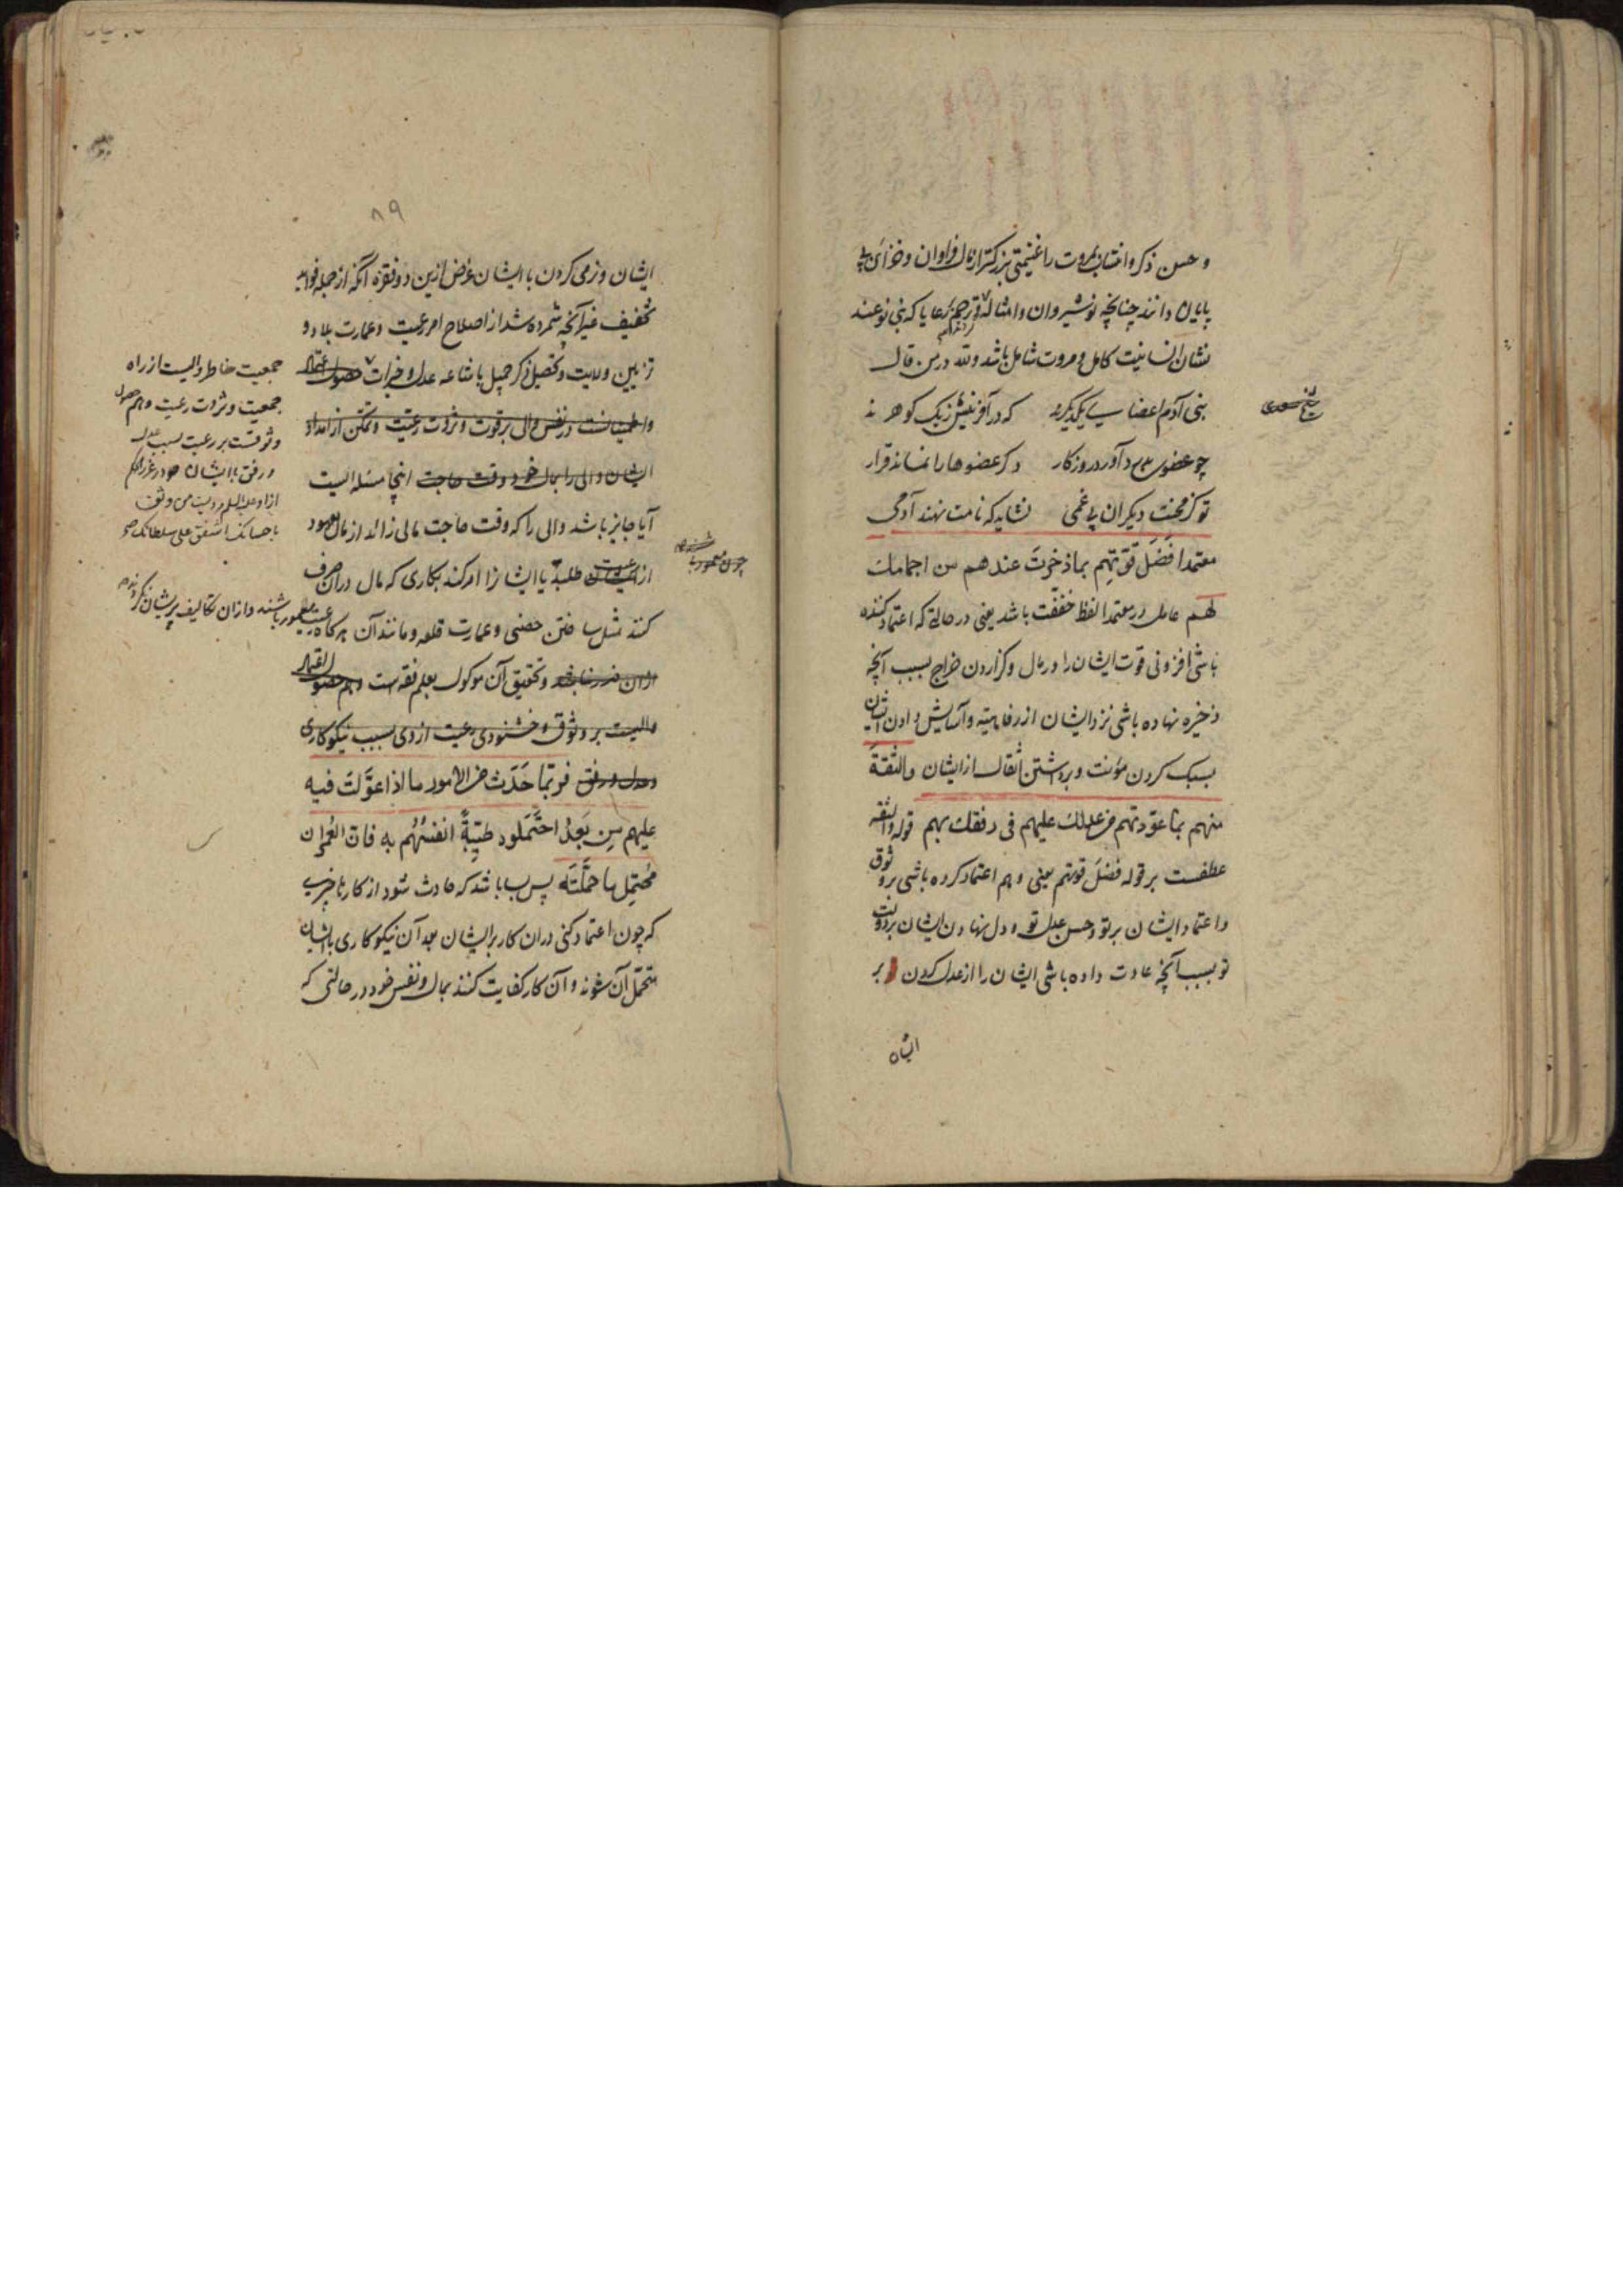 و حسن ذکر و انتساب بمروت را غنیمتی بزرکتر از مال فراوان و خزائن بی
پایان دانند چنانچه نوشیروان و امثاله ترحم بر رعایا که بنی نوعند
نشان انسانیت کامل و مروت شامل باشد ولله در من قال
بنی آدم اعضای یکدیکرند که در آفرینش ز یک کوهرند
چو عضوی بدرد آورد روزکار دکر عضوها را نماند قرار
تو کز محنت دیکران بی غمی نشاید که نامت نهند آدمی
شیخ سعدی
معتمدا فضل قوتهم بما ذخرت عندهم من اجمامک
لهم عامل در معتمدا لفظ خففت باشد یعنی در حالتی که اعتماد کننده
باشی افزونی قوت ایشان را در مال و کزاردن خراج بسبب آنچه
ذخیره نهاده باشی نزد ایشان از رفاهیته و آسایش دادن ایشان
بسبک کردن مؤنت و برداشتن اثقال از ایشان والثقة
منهم بما عودتهم من عدلک علیهم فی رفقک بهم قوله والثقه
عطفست بر قوله فضل قوتهم یعنی و هم اعتماد کرده باشی بر وثوق
و اعتماد ایشان بر تو و حسن عدل تو و دل نهادن ایشان بر دولت
تو بسبب آنچه عادت داده باشی ایشان را از عدل کردن بر
ایشان
۸۹
ایشان و نرمی کردن با ایشان غرض ازین دو فقره آنکه از جمله فواید
تخفیف غیر آنچه شمرده شد از اصلاح امر رعیت و عمارت بلاد و
تزیین ولایت و تحصیل ذکر جمیل باشاعه عدل و خیرات حصول اعتماد
و اطمینانست در نفس والی بر قوت و ثروت رعیت و تمکن از امداد
ایشان والی را بمال خود وقت حاجت اینجا مسئله ایست
آیا جایز باشد والی را که وقت حاجت مالی زائد از مال معهود
از رعیت طلبد یا ایشانرا امر کند بکاری که مال در آن صرف
کنند مثل ساختن حصنی و عمارت قلعه و مانند آن هرکاه رعیت معمور باشند و ازان تکالیف پریشان نکردند
ازان ضرر نباشد و تحقیق آن موکول بعلم فقه است و هم حصول اعتماد
والیست بر وثوق و خشنودی رعیت از وی بسبب نیکوکاری
و عدل و رفق فربما حدث من الامور ما اذا عولت فیه
علیهم من بعد احتملوه طیبة انفسهم به فان العمران
محتمل ما حملته پس بسا باشد که حادث شود از کارها چیزی
که چون اعتماد کنی دران کار بر ایشان بعد آن نیکوکاری با ایشان
متحمل آن شوند و آن کار کفایت کنند بمال و نفس خود در حالتی که
جمعیت خاطر والیست از راه
جمعیت و ثروت رعیت و هم حصول
وثوقست بر رعیت بسبب عدل
و رفق با ایشان و در غرر الحکم
از او علیه السلم مرویست من وثق
باحسانک اشفق علی سلطانک صح